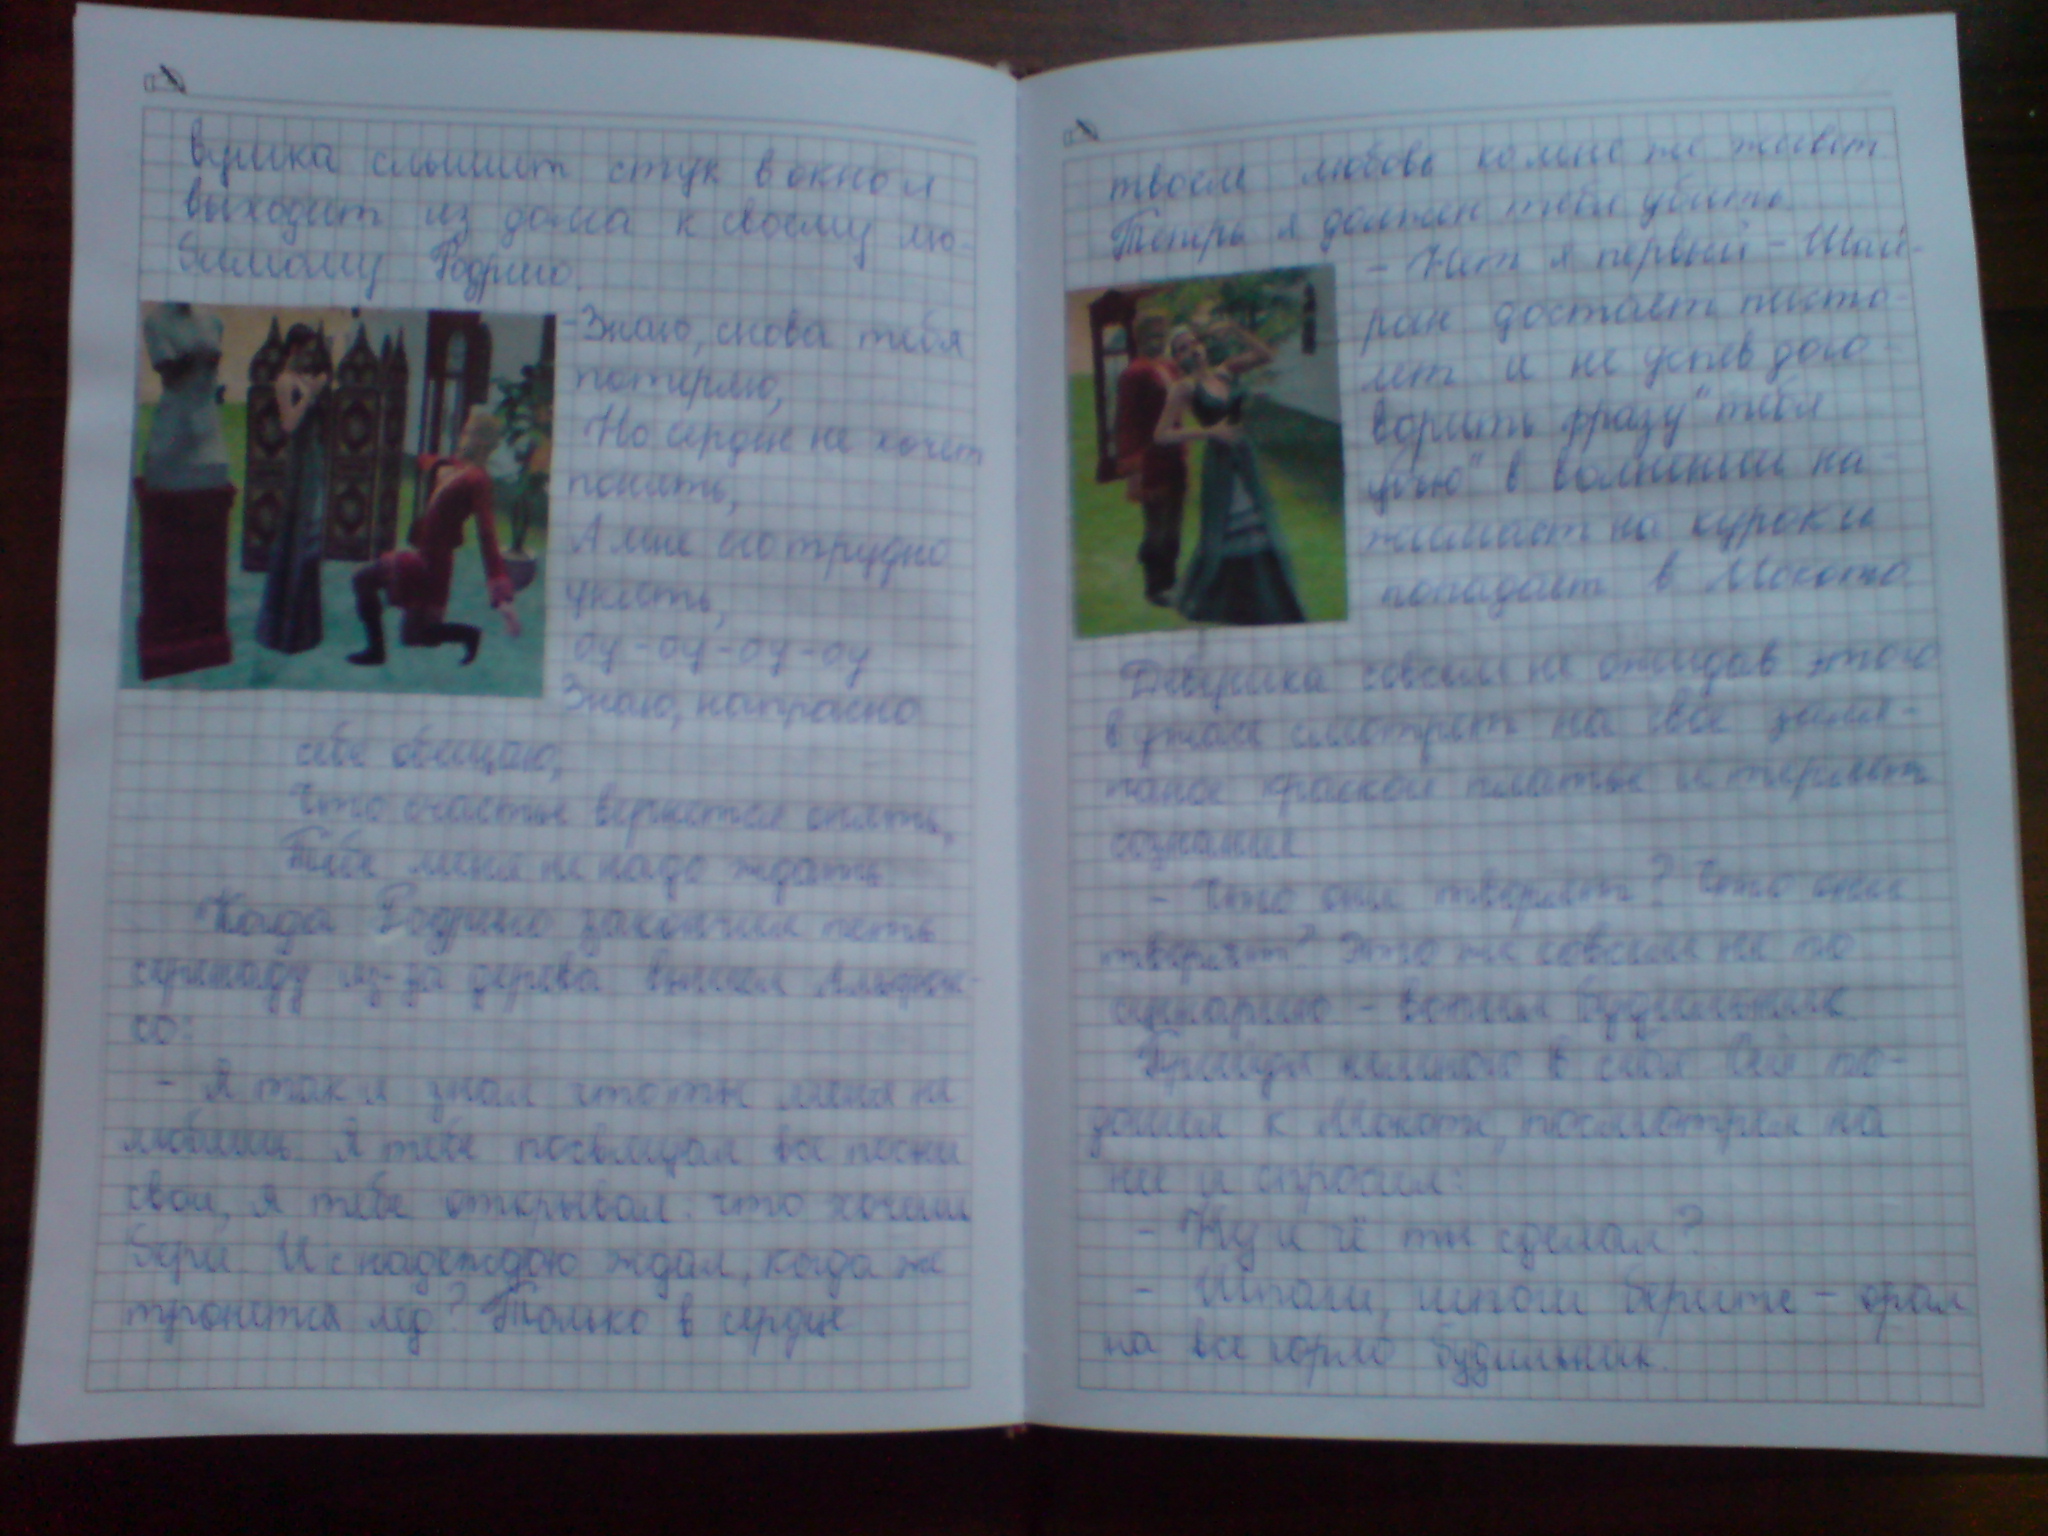 вушка слышит стук в окно и
выходит из дома к своему лю-
бимому Родриго.
-Знаю, снова тебя
потеряю,
Но сердце не хочет
понять,
А мне его трудно
унять,
оу-оу-оу-оу
Знаю, напрасно
себе обещаю,
Что счастье вернется опять,
Тебе меня не надо ждать
Когда Родриго закончил петь
серенаду из-за дерева вышел Альфон-
со:
- Я так и знал что ты меня не
любишь. Я тебе посвящал все песни
свои, я тебе открывал: что хочешь
бери. И с надеждою ждал, когда же
тронется лёд? Только в сердце
твоем любовь ко мне не живет.
Теперь я должен тебя убить.
- Нет я первый - Шай-
ран достает писто-
лет и не успев дого-
ворить фразу "тебя
убью" в волнении на-
жимает на курок и
попадает в
Девушка совсем не ожидав этого
в ужасе смотрит на свое заля-
панное краской платье и теряет
сознание
- Что они творят? Что они
творят? Это же совсем не по
сценарию - вопил будильник.
Придя немного в себя Вей по-
дошел к Мокоте, посмотрел на
нее и спросил:
- Ну и чё ты сделал?
- Шпаги, шпаги берите - орал
на все горло будильник.